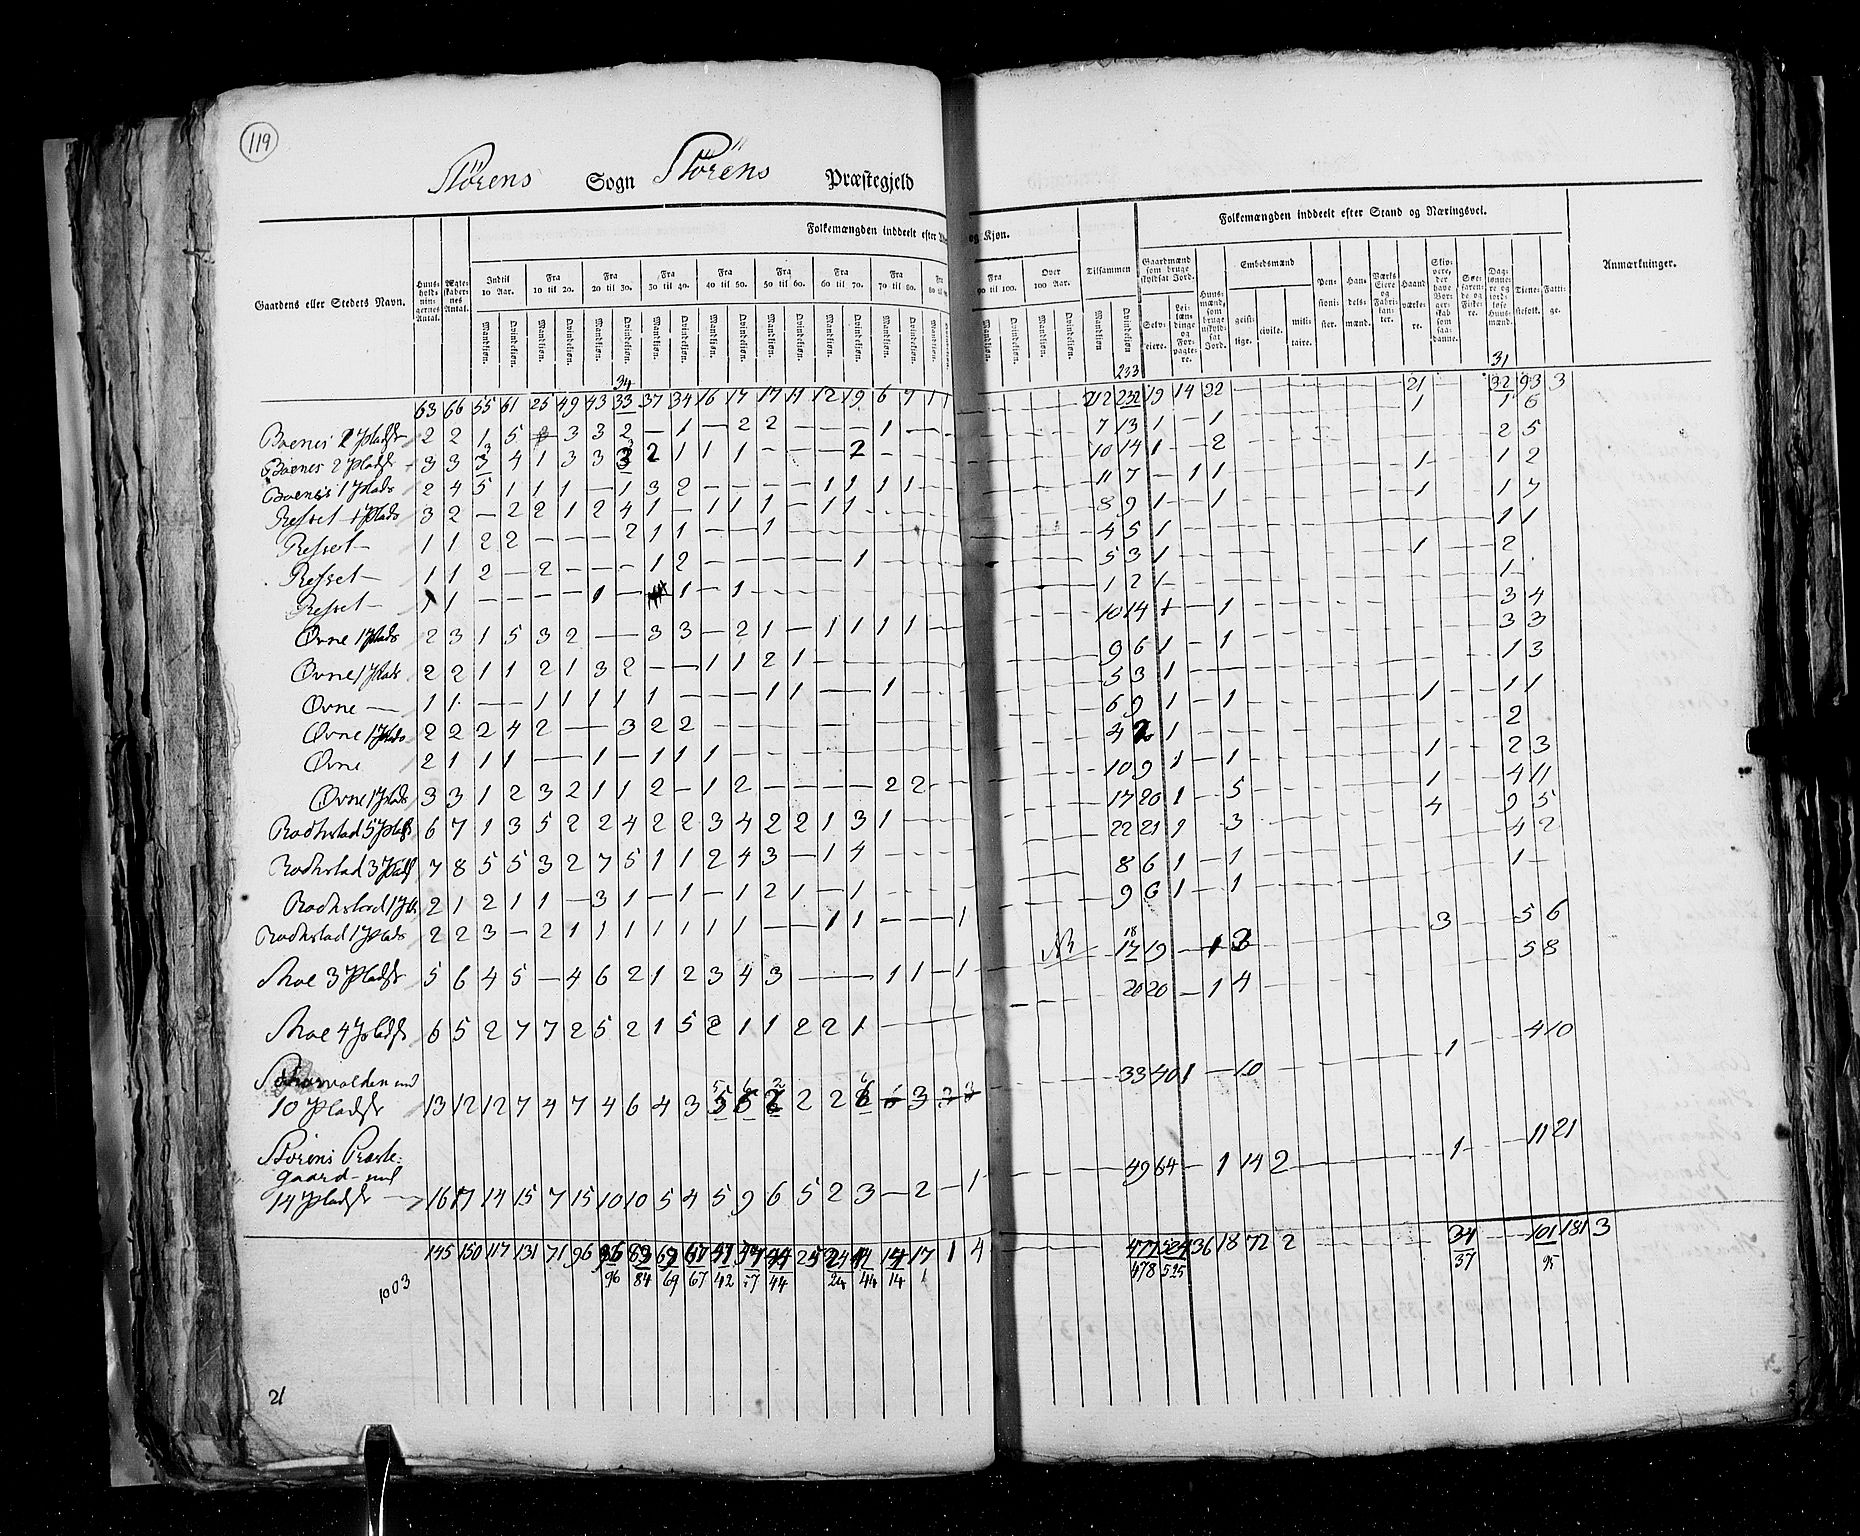 119
Störens Sogn Störens Præstegjeld
Gaardens eller Stedets Navn.
Huus-holdnin-gernes Antal.
Ægte-skaber-nes Antal.
Folkemængden inddeelt efter og Kjøn.
Indtil 10 Aar.
Fra 10 til 20.
Fra 20 til 30.
Fra 30 til 40.
Fra 40 til 50.
Fra 50 til 60.
Fra 60 til 70.
Fra 70 til 80.
Fra
Fra 90 til 100.
Over 100 Aar.
Tilsammen
Mandkjøn. Qvindekjøn.
Folkemængden inddeelt efter Stand og Næringsvei.
Gaardmænd som bruge skyldsat Jord.
Selv-eiere.
Lei-læn-dinge og For-pagte-re.
Huus-mænd, som bruge uskyld-sat Jord.
Embedsmænd
geist-lige. civile. mili-taire.
Pen-sioni-ster.
Han-dels-mænd.
Værks Eiere og Fabri-kan-ter.
Haand værke-re.
Skip-pere, der have Bor-ger-skab som saa-danne.
Søe-faren-de og Fiske-re.
Dag-lønne-re og jord-løse Huus-mænd.
Tiene-stefolk.
Fatti-ge.
Anmærkninger.
34 233 31
63 66 55 61 25 49 43 33 37 34 16 17 17 11 12 19 6 7 1 1 212 232 19 14 22 — — — — — — 21 — — 32 93 3
Boenes 2 Pladse 2 2 1 5 — 3 3 2 — 1 — 2 2 — — — 1 — 7 13 1 — 1 1 1 6
Boenes 2 Pladse 3 3 3 4 1 3 3 3 2 1 1 1 — — — 2 — 10 14 1 — 2 2 5
Boenes 1 Plads 2 4 5 1 1 1 — 1 3 2 — — — — 1 1 1 1 11 7 — 1 1 1 1 2
Resset 1 Plads 3 2 — 2 2 1 2 4 1 — 1 1 1 — 1 1 8 9 1 — 1 1 1 7
Resset — 1 1 2 2 — — — 2 1 1 — — 1 4 5 1 1 1
Resset — 1 1 2 — 2 — — — 1 2 — — — — — 1 5 3 1 1 2
Resset — 1 1 — — — — 1 — 1 — 1 1 2 1 1
Øvne 1 Plads 2 3 1 5 3 2 — — 3 3 — 2 1 — 1 1 1 1 10 14 1 — 1 3 4
Øvne 1 Plads 2 2 1 1 2 1 3 2 — — 1 1 2 1 9 6 1 — 1 3 3
Øvne — 1 1 — — 1 1 1 1 1 — — — 1 1 — — 1 5 3 1 1 3
Øvne 1 Plads 2 2 2 4 2 — — 3 2 2 6 9 1 — 1 1 1 1
Øvne 2 1 1 1 — — 1 — 1 1 1 4 2 1 2
Øvne 1 Plads 3 3 1 2 3 2 1 1 2 — 1 2 — — — — 2 2 10 9 1 — 1 1 2 3
Rodhstad 5 Pladse 6 7 1 3 5 2 2 4 2 2 3 4 2 2 1 3 1 17 20 1 — 5 1 4 11
Rodhstad 3 Pladse 7 8 5 5 3 2 7 5 1 1 2 4 3 — 1 4 22 21 1 — 3 4 9 5
Rodhstad 1 2 1 2 1 1 — 3 1 — 1 — 1 2 1 — 1 8 6 1 — 1 4 2
Rodhstad 1 Plads 2 2 3 — 2 1 1 1 1 1 1 1 — — 1 1 — — — 1 9 6 1 — 1 1 —
18
Moe 3 Pladse 5 6 4 5 — 4 6 2 1 2 3 4 3 — — — 1 1 — 1 NB 17 19 — 1 3 3 5 6
Moe 4 Pladse 6 5 2 7 7 2 5 2 1 5 2 1 1 2 2 1 20 20 — 1 4 5 8
10 Pladse 13 12 12 7 4 7 4 6 4 3 5 6 2 2 2 6 33 40 1 — 10 1 4 10
Störens Præste-
gaard — med
14 Pladse 16 17 14 15 7 15 10 10 5 4 5 9 6 5 2 3 — 2 — 1 49 64 — 1 14 2 1 11 21
145 150 117 131 71 96 17 1 4 477 524 36 18 72 2 34 101 181 3
96 84 69 67 42 57 44 24 44 14 478 525 37 95
1003
21